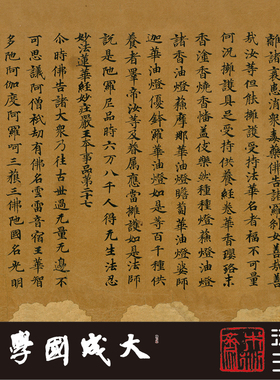 哉汝等但能擁護受持法華名者福不可量
何況擁護具足受持供養經卷華香瓔珞末
香塗香燒香幡蓋伎樂燃種種燈蘇燈油燈
諸香油燈蘇摩那華油燈瞻蔔華油燈婆師
迦華油燈優鉢羅華油燈如是等百千種供
養者睪帝汝等及眷屬應當擁護如是法師
說是陀羅尼品時六万八千人得无生法忍
妙法蓮華經妙莊嚴王本事品第二十七
尒時佛告諸大衆乃往古世過无量无邊不
可思議阿僧祇劫有佛名雲雷音宿王華智
多陀阿伽度阿羅呵三藐三佛陀國名光明
大成國學